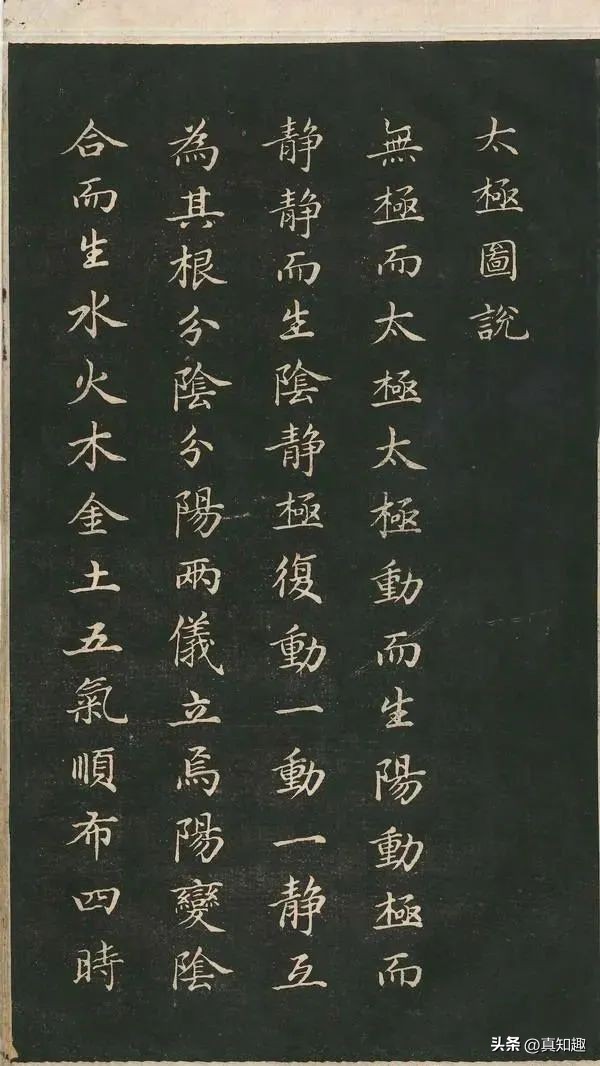 太極圖說
無極而太極太極動而生陽動極而
静静而生陰静極復動一動一静互
為其根分陰分陽兩儀立焉陽變陰
合而生水火木金土五氣順布四時
头条 @真知趣